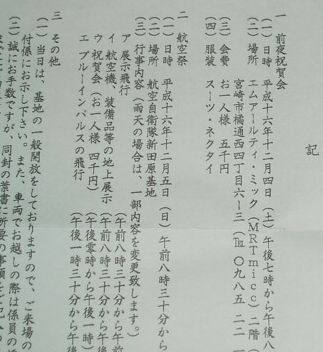 記
一 前夜祝賀会
(一) 日時 平成十六年十二月四日(土)午後七時から午後八
(二) 場所 エムアールティ・ミック(MRTmicc)二階(
宮崎市橘通西四丁目六ー三(℡〇九八五 二二 ー
(三) 会費 お一人様 五千円
(四) 服装 スーツ・ネクタイ
二 航空祭
(一) 日時 平成十六年十二月五日(日)午前八時三十分から
(二) 場所 航空自衛隊新田原基地
(三) 行事内容(雨天の場合は、一部内容を変更致します。)
ア 展示飛行 (午前八時三十分から午
イ 航空機、装備品等の地上展示 (午前八時三十分から午
ウ 祝賀会(お一人様 四千円) (午後零時から午後一時)
エ ブルーインパルスの飛行 (午後一時三十分から午
三 その他
(一) 当日は、基地の一般開放をしておりますので、ご来場の
付係にお示し下さい。また、車両でお越しの際は係員の
(二) 誠にお手数ですが、同封の葉書に所要の事項を